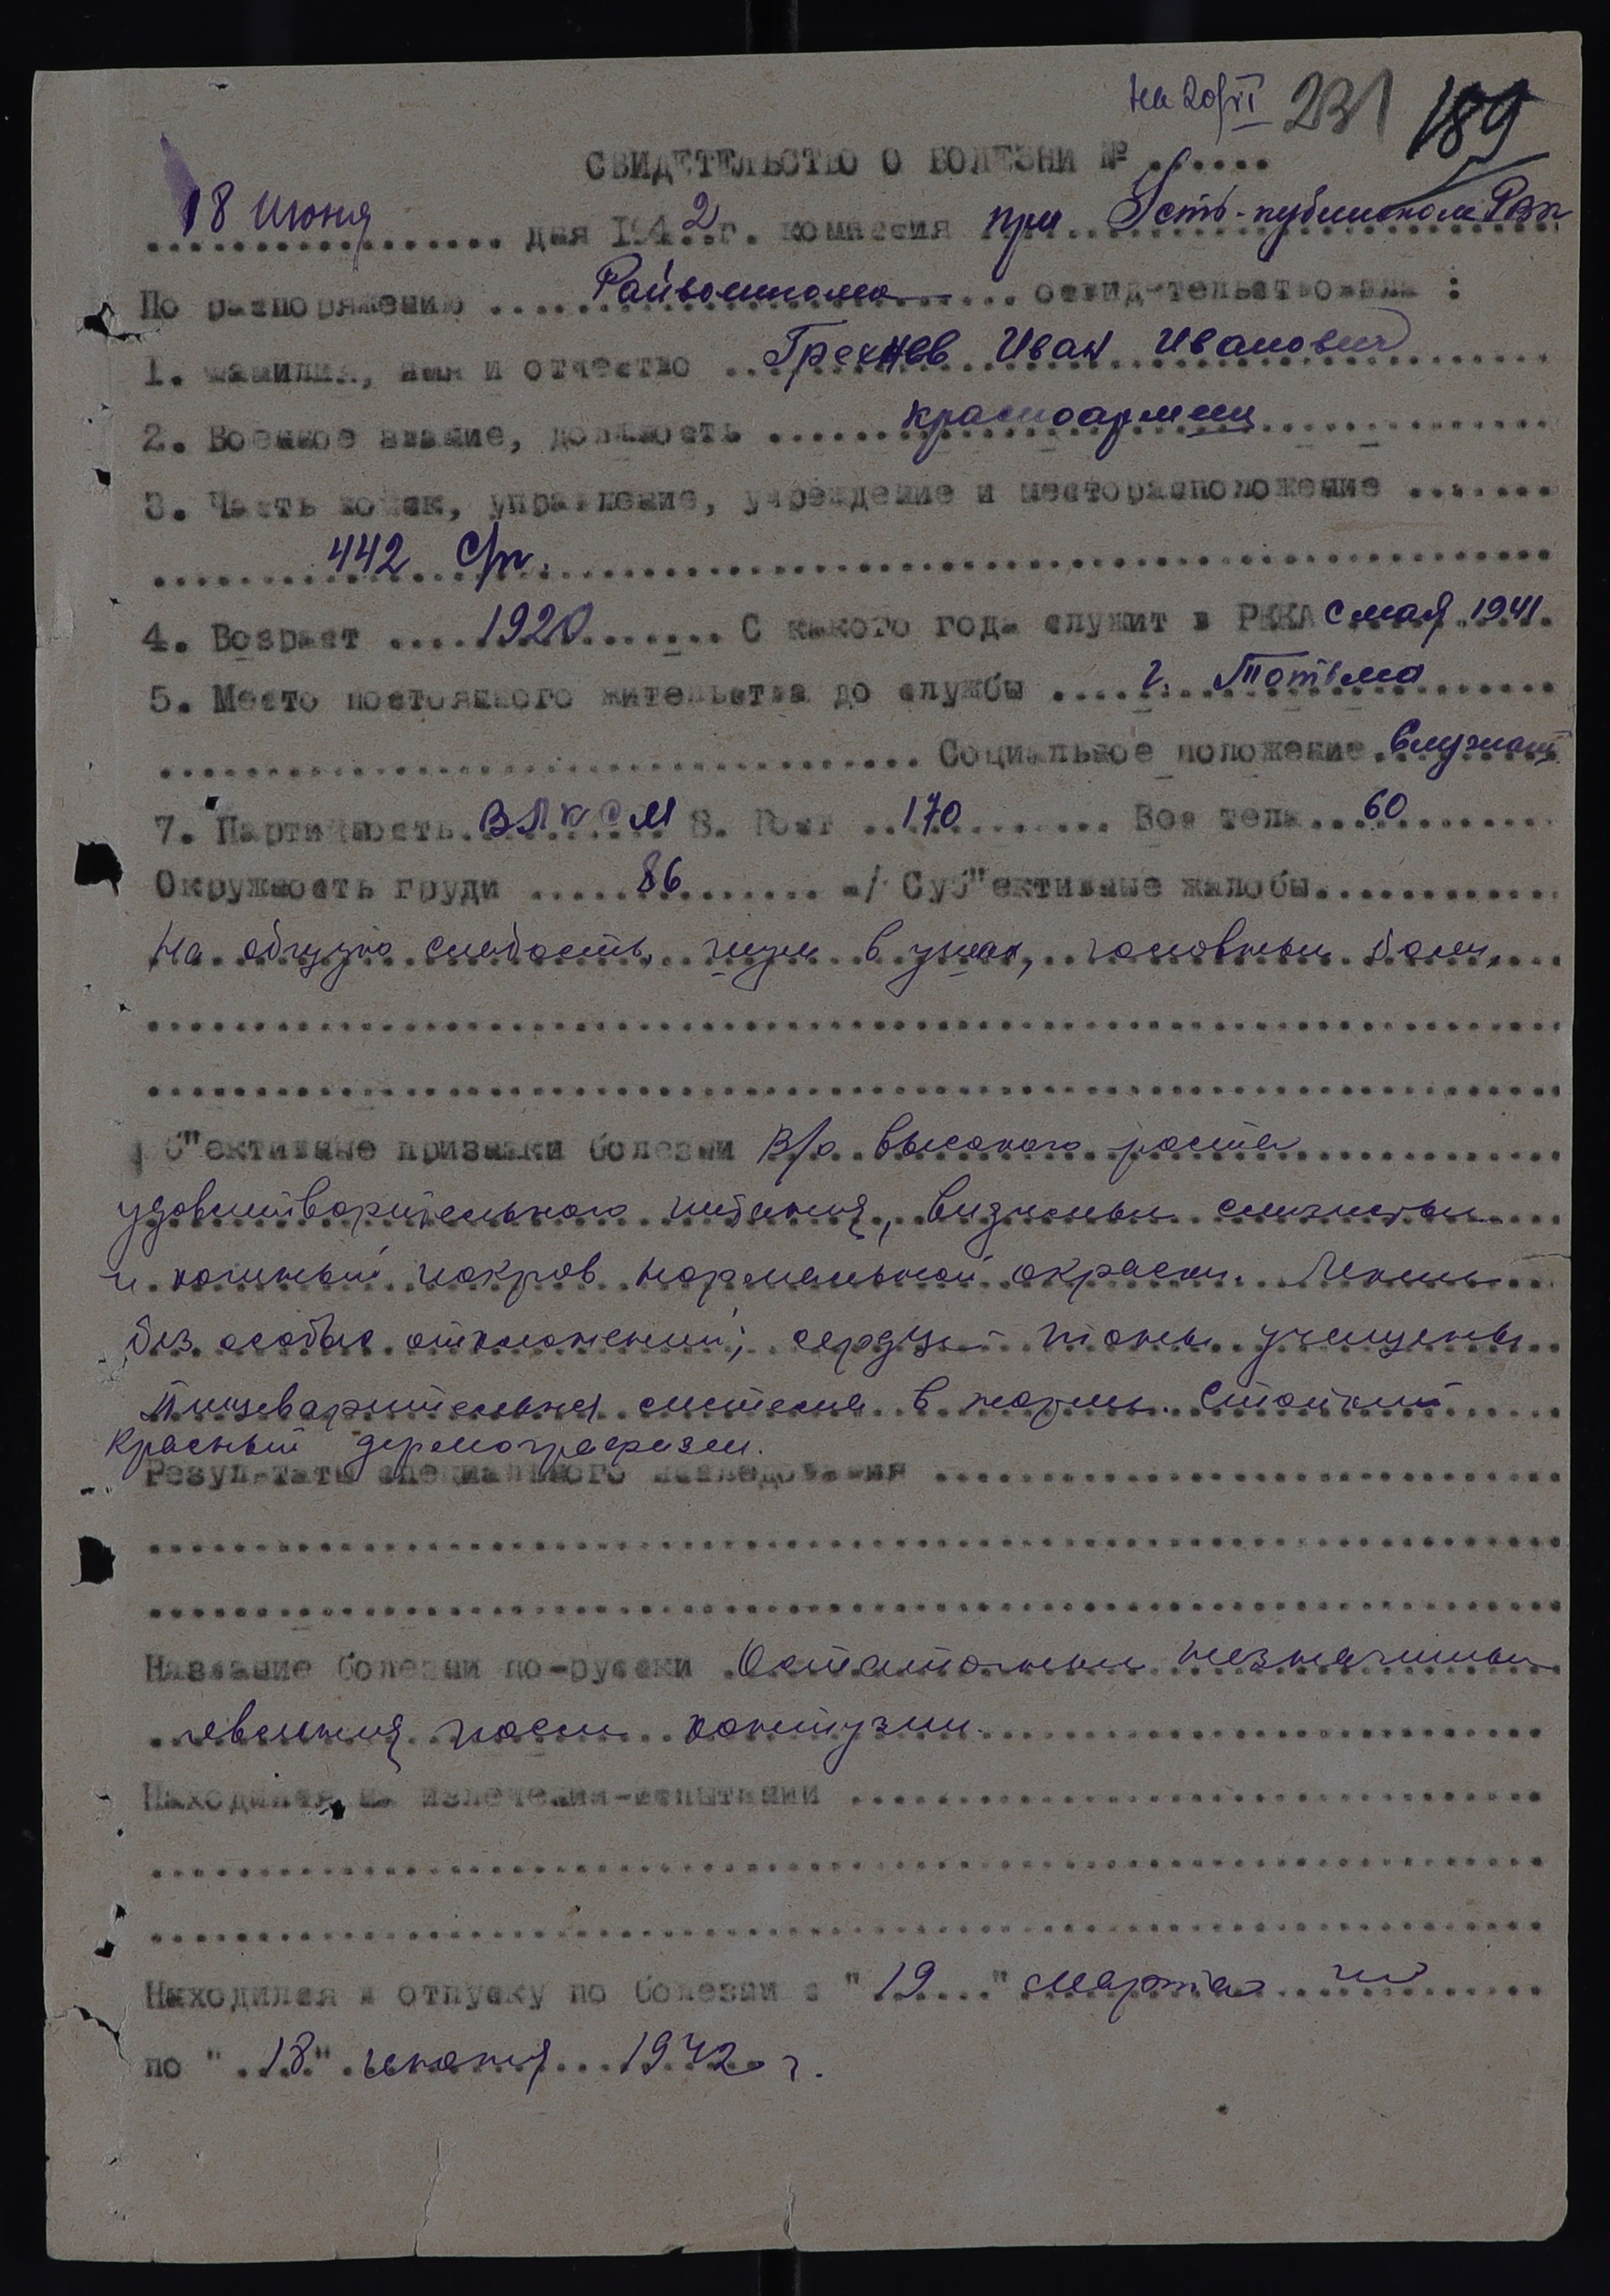 на 20/VI 231 189
СВИДЕТЕЛЬСТВО О БОЛЕЗНИ № .......
18 июня дня 1942 г. комиссия при Усть-кубинском РВК
По распоряжению Райвоенкома освидетельствовала :
1. Фамилия, имя и отчество Грехнев Иван Иванович
2. Военное звание, должность красноармеец
3. Часть войск, управление, учреждение и месторасположение .......
442 с/п.
4. Возраст 1920 С какого года служит в РККА с мая 1941.
5. Место постоянного жительства до службы г. Тотьма
Социальное положение служащ
7. Партийность ВЛКСМ 8. Рост 170 Вес тела 60
Окружность груди 86 а/ Суб"ективные жалобы
На общую слабость, шум в ушах, головные боли,
Об"ективные признаки болезни В/о высокого роста
удовлетворительного питания, видимые слизистые
и кожный покров нормальной окраски. Легкие
без особых отклонений; сердце - тоны учащены
Пищеварительная система в норме. Стойкий
красный дермографизм.
Результаты специального исследования
Название болезни по-русски Остаточные незначительные
явления после контузии.
Находился на излечении-испытании
Находился в отпуску по болезни с "19" марта по
по "18" июня 1942 г.